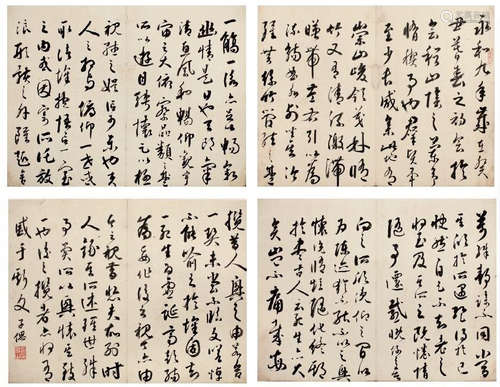 永和九年歲在癸
丑暮春之初會於
會稽山陰之蘭亭
脩禊事也群賢畢
至少長咸集此地有
崇山峻領茂林脩
竹又有清流激湍
暎帶左右引以為
流觴曲水列坐其次
雖無絲竹管絃之盛
一觴一詠亦足以暢敘
幽情是日也天朗氣
清惠風和暢仰觀宇
宙之大俯察品類之盛所
以遊目騁懷足以極
視聽之娛信可樂也夫
人之相與俯仰一世或
取諸懷抱悟言一室
之內或因寄所託放
浪形骸之外雖趣舍
萬殊靜躁不同當其
欣於所遇暫得於己
快然自足不知老之
將至及其所之既惓情
隨事遷感慨係之矣
向之所欣俛仰之間以
為陳迹猶不能不以之興
懷況脩短隨化終期
於盡古人云死生亦大
矣豈不痛哉每
攬昔人興感之由若合
一契未嘗不臨文嗟悼
不能喻之於懷固知
一死生為虛誕齊彭殤
為妄作後之視今亦由
今之視昔悲夫故列敘時
人錄其所述雖世殊
事異所以興懷其致
一也後之攬者亦將有
感于斯文 子偲